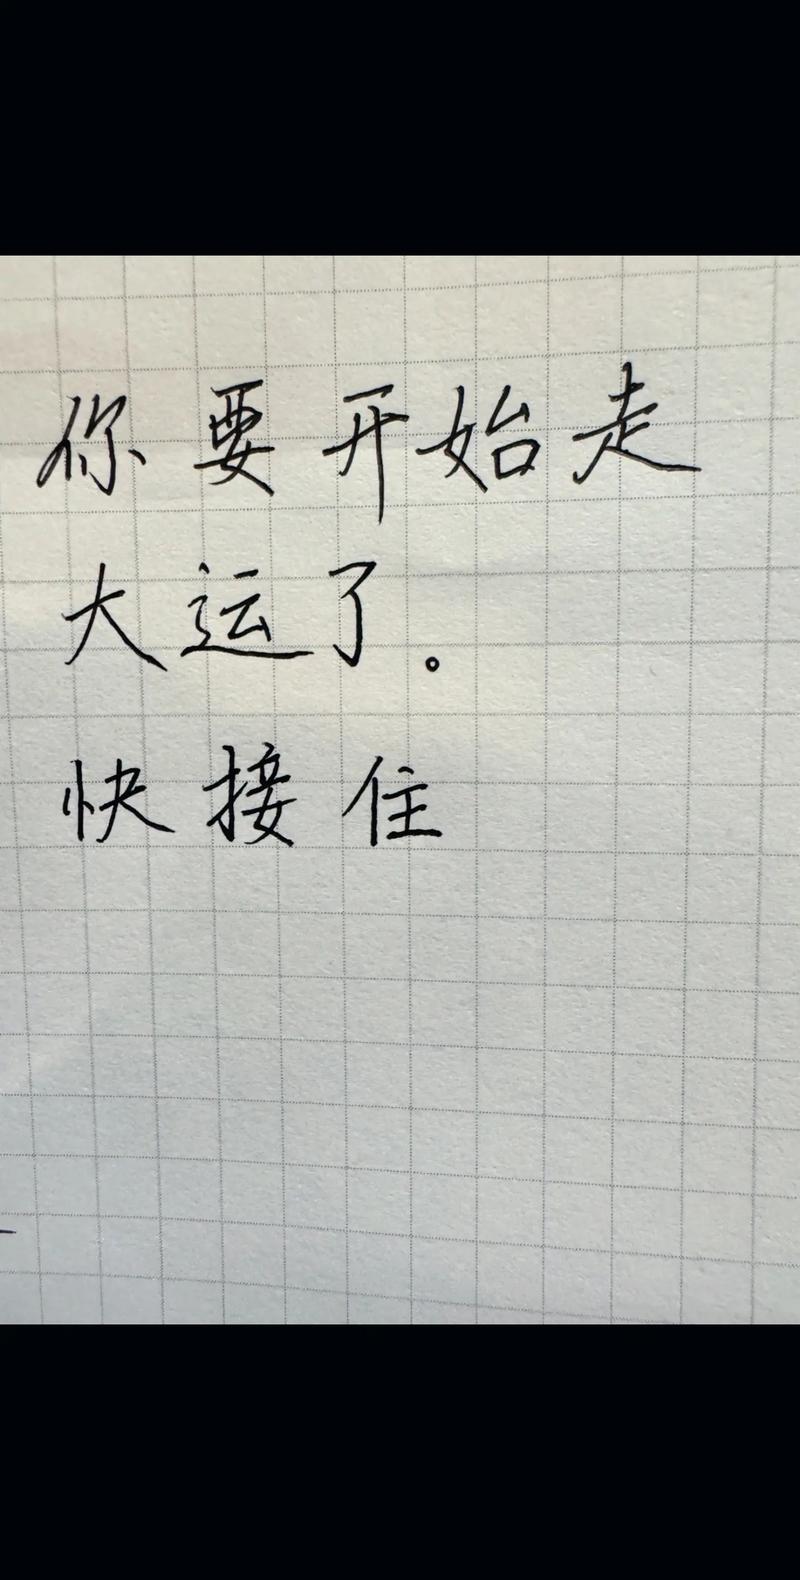 你要开始走
大运了。
快接住